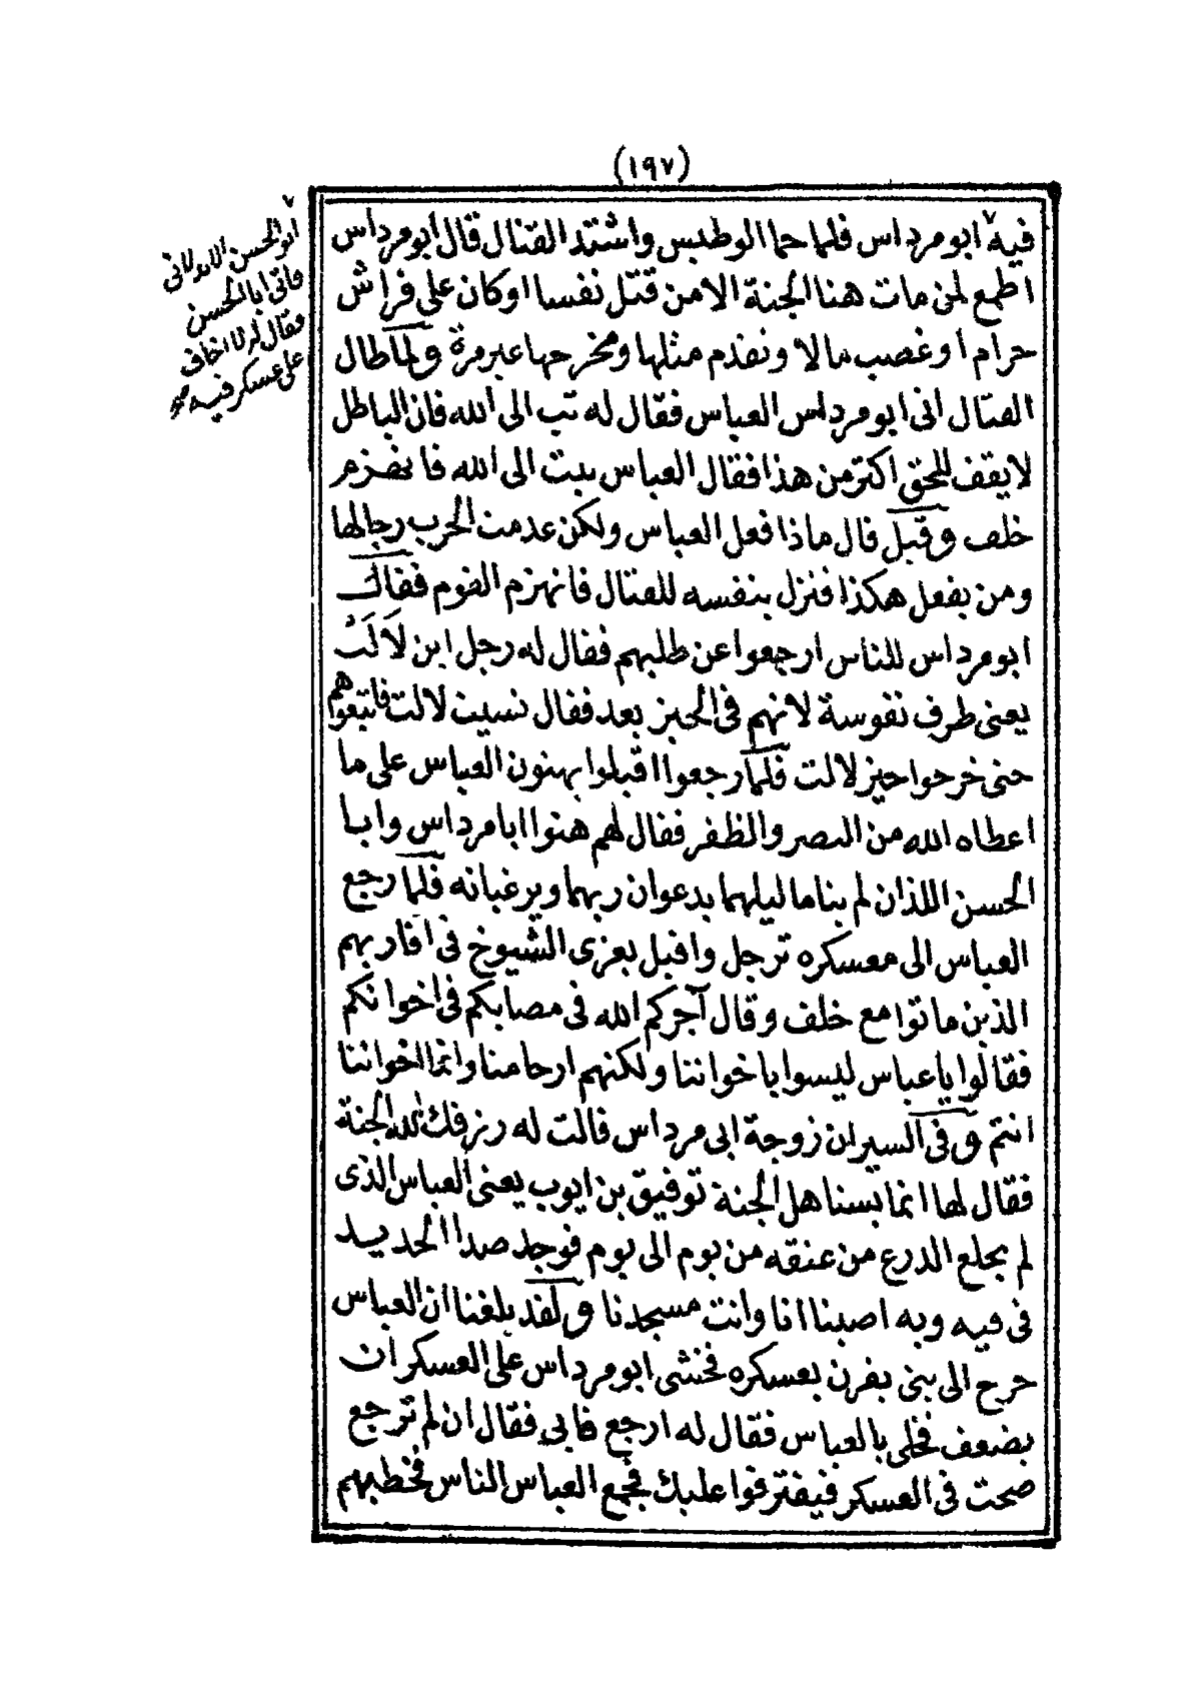 (١٩٧)
فيه ابو مرداس فلما حما الوطيس واشتد القتال قال أبو مرداس
اطمع لمن مات هنا الجنة الا من قتل نفسا او كان على فراش
حرام أو غصب مالا ونقدم مثلها ومخرجها غير مرة ولما طال
القتال اتى ابو مرداس العباس فقال له تب الى الله فان الباطل
لا يقف للحق اكثر من هذا فقال العباس تبت الى الله فانهزم
خلف وقيل قال ماذا فعل العباس ولكن عدمت الحرب رجالها
ومن يفعل هكذا فنزل بنفسه للقتال فانهزم القوم فقال
ابو مرداس للناس ارجعوا عن طلبهم فقال له رجل ابن لَالَتْ
يعنى طرف نفوسة لانهم فى الحيز بعد فقال نسيت لالت فاتبعوهم
حتى خرجوا حيز لالت فلما رجعوا اقبلوا يهنون العباس على ما
اعطاه الله من النصر والظفر فقال لهم هنوا ابا مرداس وابا
الحسن اللذان لم يناما ليلهما يدعوان ربهما ويرغبانه فلما رجع
العباس الى معسكره ترجل واقبل يعزى الشيوخ فى اقاربهم
الذين ماتوا مع خلف وقال آجركم الله فى مصابكم فى اخوانكم
فقالوا يا عباس ليسوا باخواننا ولكنهم ارحامنا وانما اخواننا
انتم وفى السير ان زوجة ابى مرداس قالت له رزقك الله الجنة
فقال لها انما يسناهل الجنة توفيق بن ايوب يعنى العباس الذى
لم يخلع الدرع من عنقه من يوم الى يوم فوجد صدا الحديد
فى فيه وبه اصبنا انا وانت مسجدنا ولقد بلغنا ان العباس
خرج الى بنى يفرن بعسكره فخشى ابو مرداس على العسكر ان
يضعف فخلى بالعباس فقال له ارجع فابى فقال ان لم ترجع
صحت فى العسكر فيفترقوا عليك فجمع العباس الناس فخطبهم
ابو الحسن الابدلانى
فاتى ابا الحسن
فقال له انا اخاف
على عسكر فيه صح